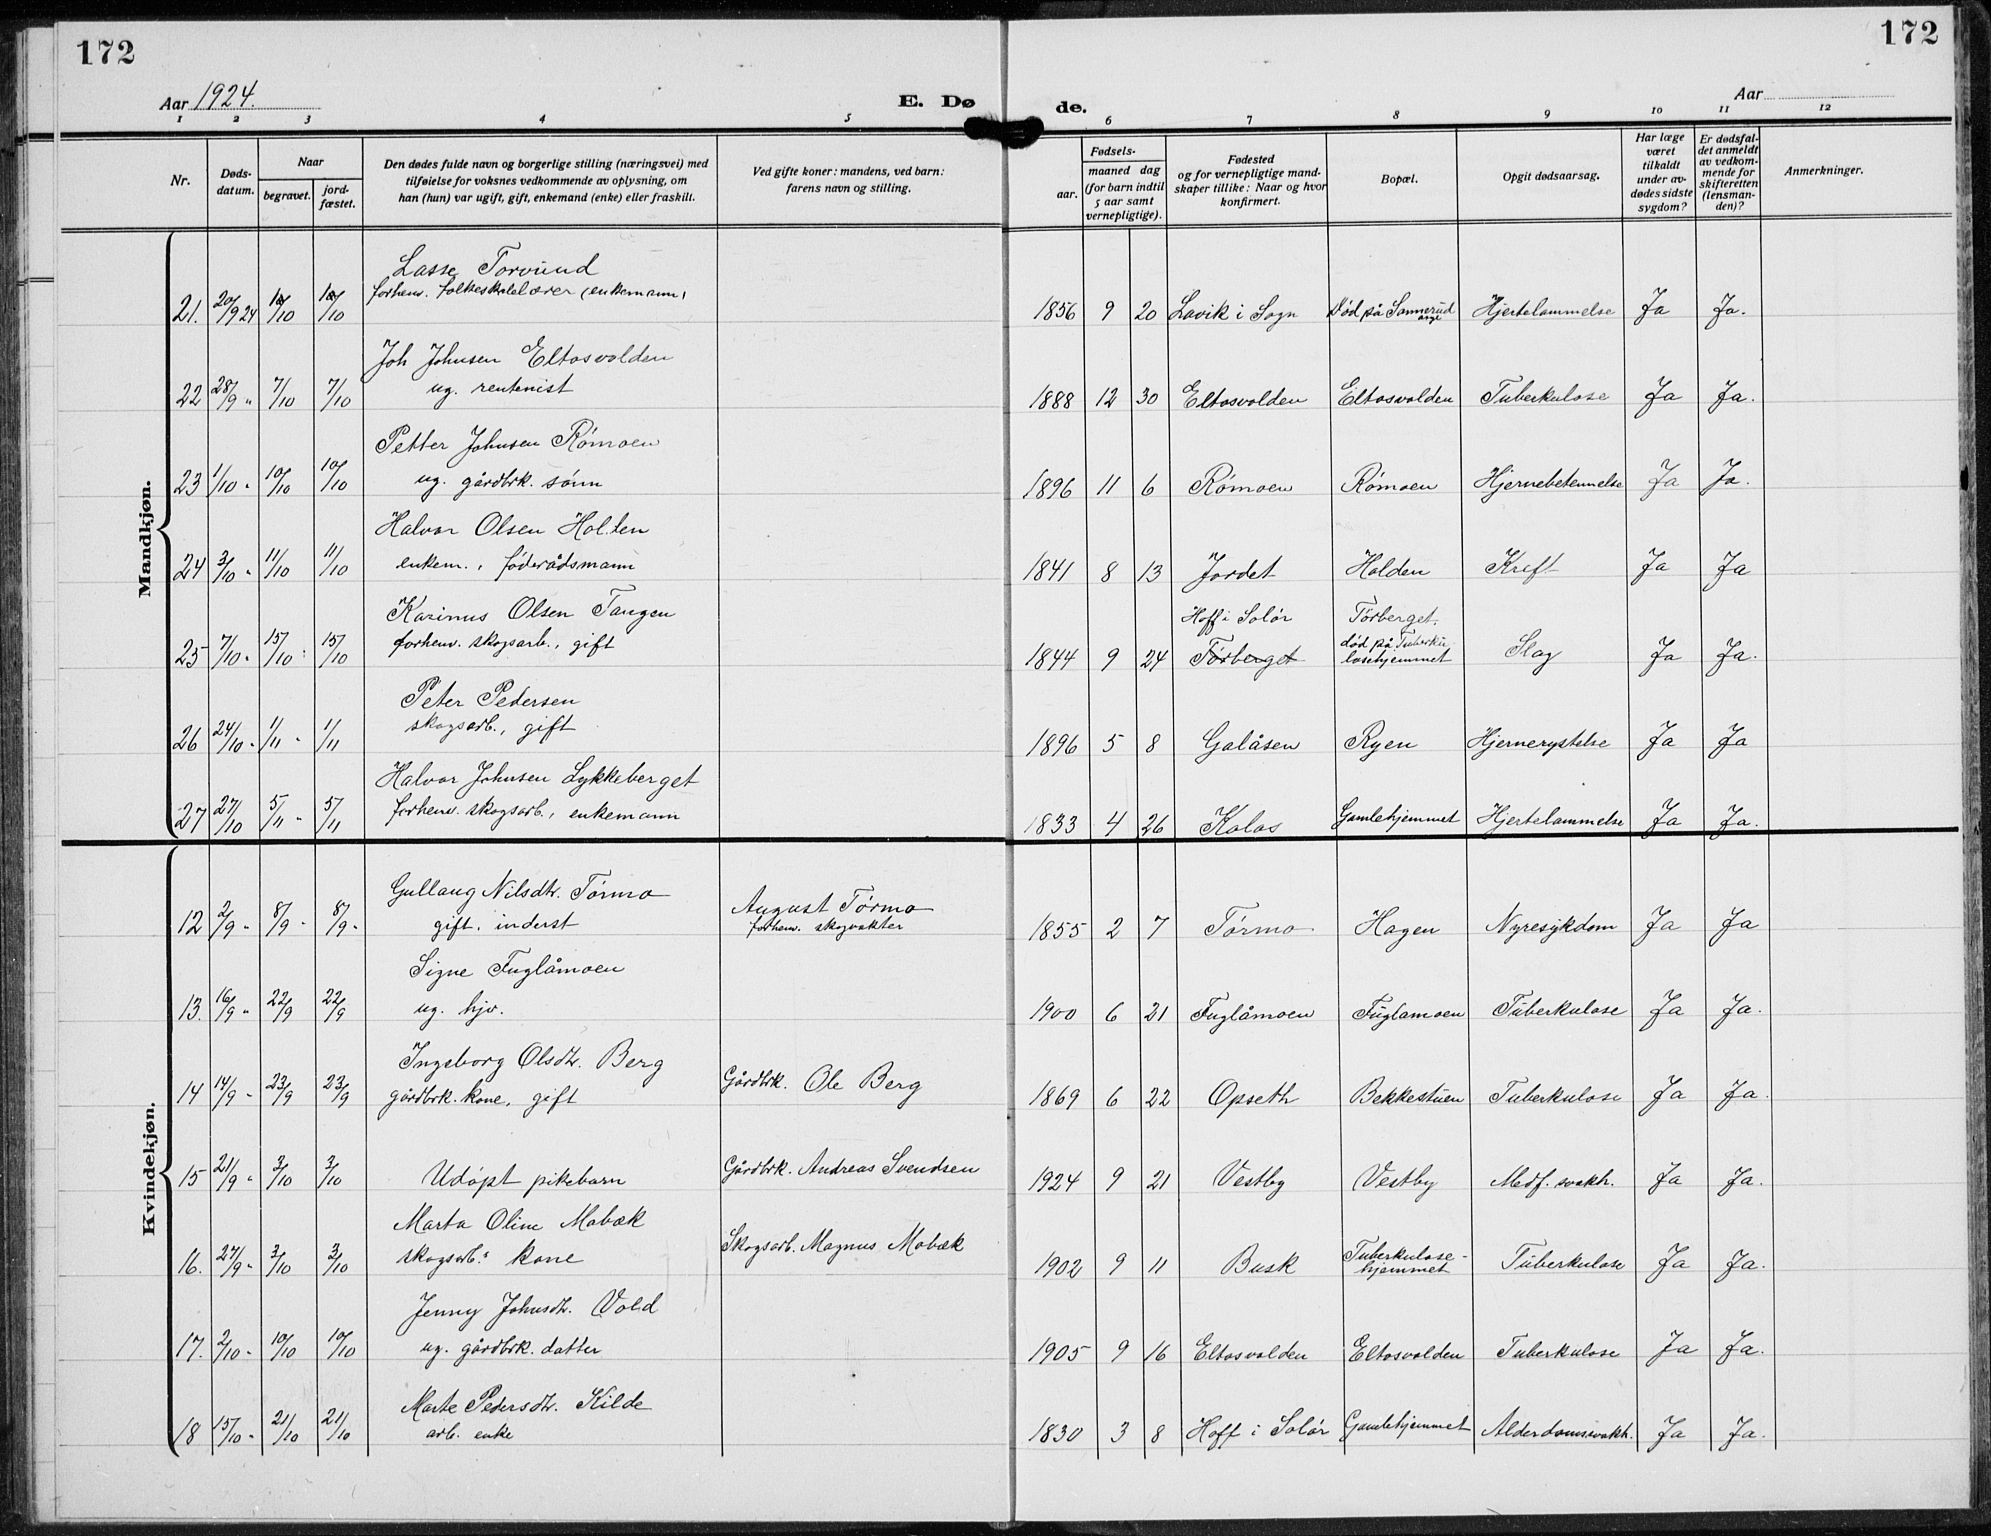 172
172
Aar 1924.
E. Dø
de.
Aar
1 2 3 4 5 6 7 8 9 10 11 12
Nr.
Døds-
datum.
Naar
begravet.
jord-
fæstet.
Den dødes fulde navn og borgerlige stilling (næringsvei) med
tilføielse for voksnes vedkommende av oplysning, om
han (hun) var ugift, gift, enkemand (enke) eller fraskilt.
Ved gifte koner: mandens, ved barn:
farens navn og stilling.
Fødsels-
aar.
maaned dag
(for barn indtil
5 aar samt
vernepligtige).
Fødested
og for vernepligtige mand-
skaper tillike: Naar og hvor
konfirmert.
Bopæl.
Opgit dødsaarsag.
Har læge
været
tilkaldt
under av-
dødes sidste
sygdom?
Er dødsfal-
det anmeldt
av vedkom-
mende for
skifteretten
(lensman-
den)?
Anmerkninger.
Mandkjøn.
Lasse Torvund
forhenv. folkeskolelærer (enkemann)
21. 20/9 24 10/10 10/10 1856 9 20 Lavik i Sogn Død på Sannerud asyl Hjertelammelse Ja Ja.
Joh Johnsen Eltosvolden
ug. rentenist
22 28/9 " 7/10 7/10 1888 12 30 Eltosvolden Eltosvolden Tuberkulose Ja Ja.
Petter Johnsen Römoen
ug. gårdbrk. sønn
23 1/10 " 10/10 10/10 1896 11 6 Römoen Römoen Hjernebetennelse Ja Ja.
Halvor Olsen Holten
enkem., føderådsmann
24 3/10 " 11/10 11/10 1841 8 13 Jordet Holden Kreft Ja Ja
Karinus Olsen Tangen Hoff i Solør Törberget.
forhenv. skogsarb., gift død på Tuberku
25 7/10 " 15/10 15/10 1844 9 24 Törberget losehjemmet Slag Ja Ja.
Peter Pedersen
skogsarb., gift
26 24/10 " 1/11 " 1/11 1896 5 8 Galåsen Ryen Hjernerystelse Ja Ja
Halvor Johnsen Lykkeberget
forhenv. skogsarb., enkemann
27 27/10 5/11 " 5/11 1833 4 26 Kolos Gamlehjemmet Hjertelammelse Ja Ja.
Kvindekjøn.
Gullaug Nilsdtr. Törmo August Törmo
gift. inderst forhenv. skogvokter
12 2/9 " 8/9 " 8/9 " 1855 2 7 Törmo Hagen Nyresykdom Ja Ja
Signe Fuglåmoen
ug. hjv.
13. 16/9 " 22/9 22/9 1900 6 21 Fuglåmoen Fuglamoen Tuberkulose Ja Ja.
Ingeborg Olsdtr. Berg Gårdbrk. Ole Berg
gårdbrk. kone, gift
14 14/9 " 23/9 23/9 1869 6 22 Opseth Bekkestuen Tuberkulose Ja Ja.
15 21/9 " 3/10 3/10 Udöpt pikebarn Gårdbrk. Andreas Svendsen 1924 9 21 Vestby Vestby Medf. svakh. Ja Ja.
Marta Oline Mobæk Skogsarb. Magnus Mobæk
skogsarb.s kone
16. 27/9 " 3/10 3/10 1902 9 11 Busk Tuberkulose-
hjemmet Tuberkulose Ja Ja.
Jenny Johnsdtr. Vold
ug. gårdbrk. datter
17. 2/10 " 10/10 10/10 1905 9 16 Eltosvolden Eltosvolden Tuberkulose Ja Ja.
Marte Pedersdtr. Kilde
arb. enke
18 15/10 " 21/10 21/10 1830 3 8 Hoff i Solör Gamlehjemmet Alderdomssvakh. Ja Ja.